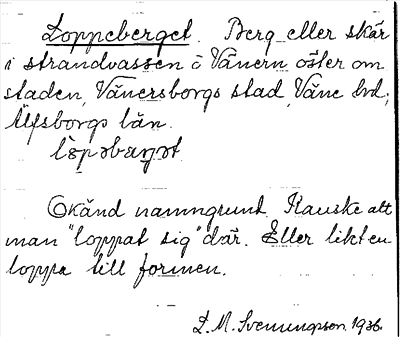 Loppeberget. Berg eller skär
i strandvassen i Vänern öster om
staden, Vänersborgs stad, Väne hd,
Älfsborgs län.
Okänd namngrund. Kanske att
man "loppat sig" där. Eller likt en
loppa till formen.
L. M. Svenungsson 1936.